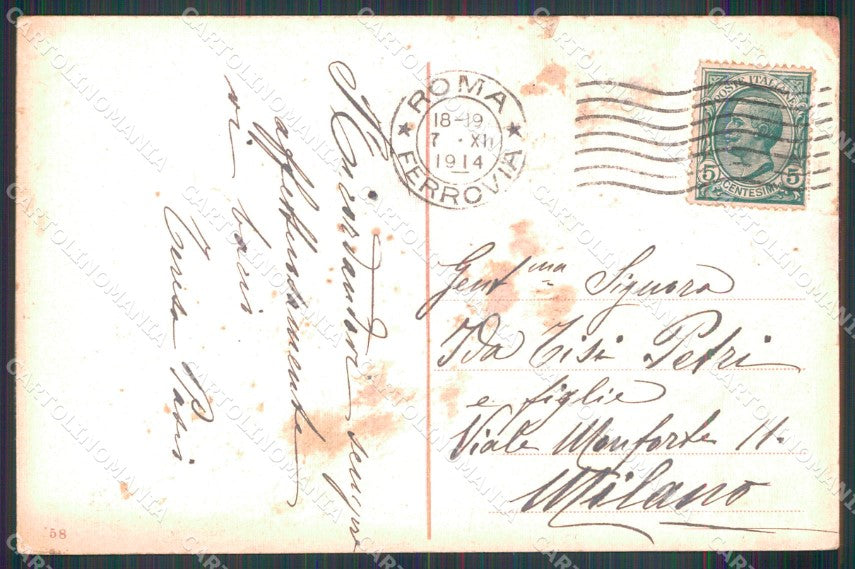 Ricordandovi sempre
affettuosamente
vi bacio
Teresa
ROMA
18-19
7 · XII
1914
FERROVIA
POSTE ITALIANE
5 CENTESIMI 5
Gent.ma Signora
Ida Tisi Petri
e figlie
Viale Monforte 11.
Milano
58
CARTOLINOMANIA